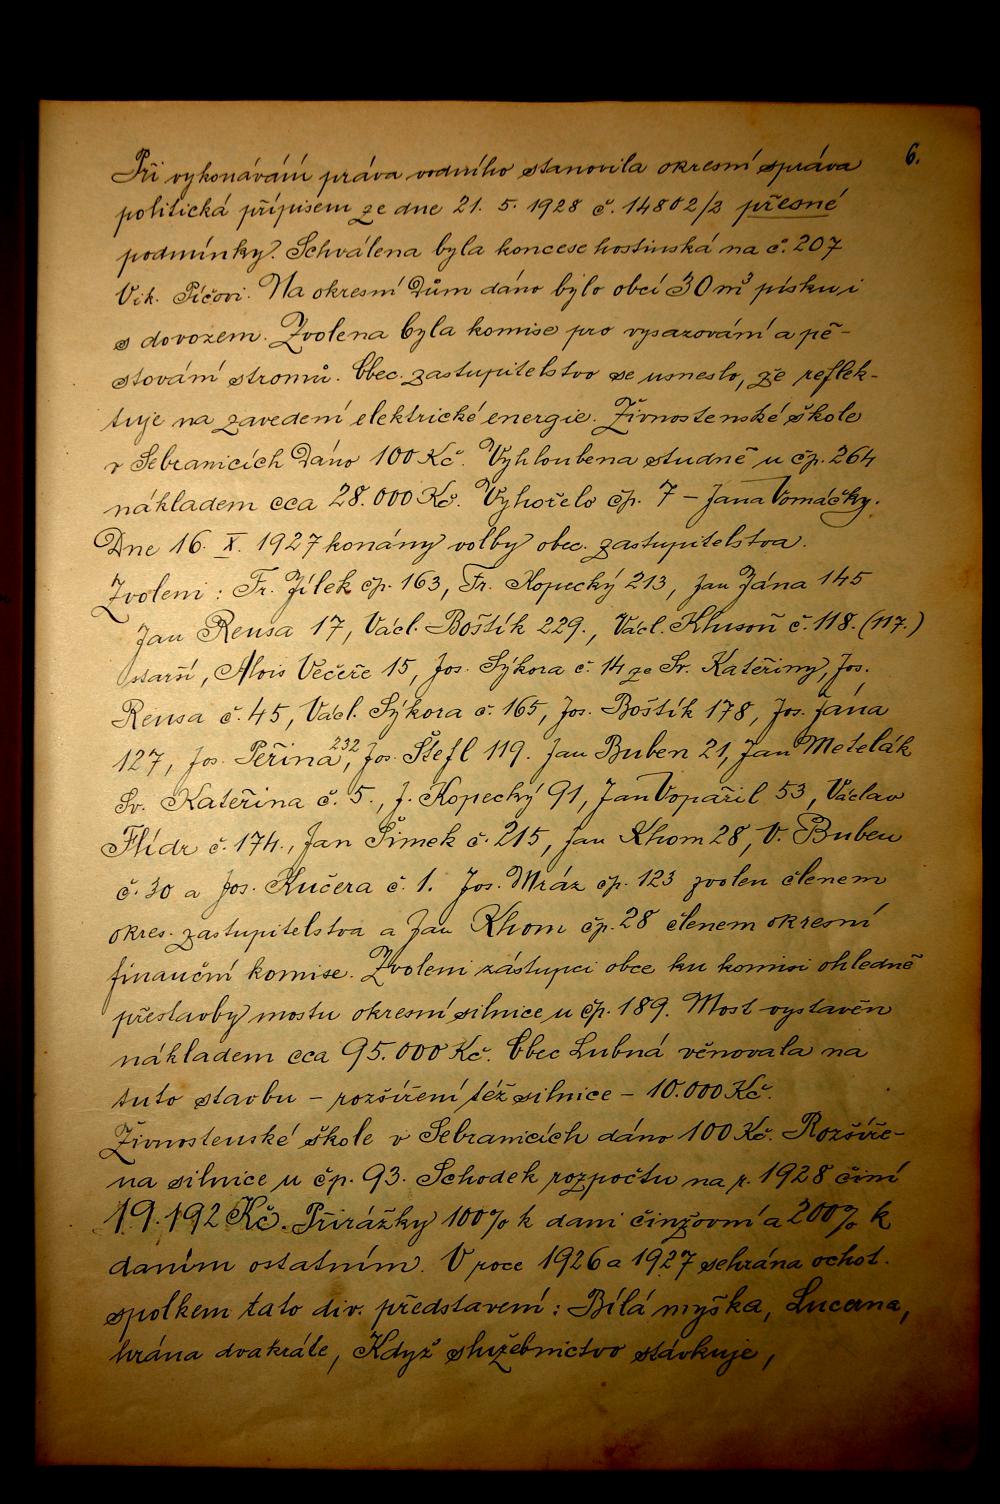 6.
Při vykonávání práva vodního stanovila okresní správa
politická přípisem ze dne 21. 5. 1928 č. 14802/3 přesné
podmínky. Schválena byla koncese hostinská na č. 207
Vik. Píčovi. Na okresní Dům dáno bylo obcí 30 m³ písku i
s dovozem. Zvolena byla komise pro vysazování a pě-
stování stromů. Obec. zastupitelstvo se usneslo, že reflek-
tuje na zavedení elektrické energie. Živnostenské škole
v Sebranicích Dáno 100 Kč. Vyhloubena studně u čp. 264
nákladem cca 28.000 Kč. Vyhořelo čp. 7 – Jana Tomáčky.
Dne 16. X. 1927 konány volby obec. zastupitelstva.
Zvoleni : Fr. Jílek čp. 163, Fr. Kopecký 213, Jan Jána 145
Jan Rensa 17, Václ. Boštík 229., Václ. Klusoň č. 118. (117.)
starší, Alois Večeře 15, Jos. Sýkora č. 14 ze Sv. Kateřiny, Jos.
Rensa č. 45, Václ. Sýkora č. 165, Jos. Boštík 178, Jos. Jána
127, Jos. Peřina 232, Jos. Štefl 119. Jan Buben 21, Jan Metelák
Sv. Kateřina č. 5., J. Kopecký 91, Jan Vopařil 53, Václav
Flídr č. 174., Jan Šimek č. 215, Jan Khom 28, V. Buben
č. 30 a Jos. Kučera č. 1. Jos. Mráz čp. 123 zvolen členem
okres. zastupitelstva a Jan Khom čp. 28 členem okresní
finanční komise. Zvoleni zástupci obce ku komisi ohledně
přestavby mostu okresní silnice u čp. 189. Most vystavěn
nákladem cca 95.000 Kč. Obec Lubná věnovala na
tuto stavbu – rozšíření též silnice – 10.000 Kč.
Živnostenské škole v Sebranicích dáno 100 Kč. Rozšíře-
na silnice u čp. 93. Schodek rozpočtu na r. 1928 činí
19.192 Kč. Přirážky 100% k dani činžovní a 200% k
daním ostatním. V roce 1926 a 1927 sehrána ochot.
spolkem tato div. představení : Bílá myška, Lucerna,
hrána dvakráte, Když služebnictvo stávkuje,